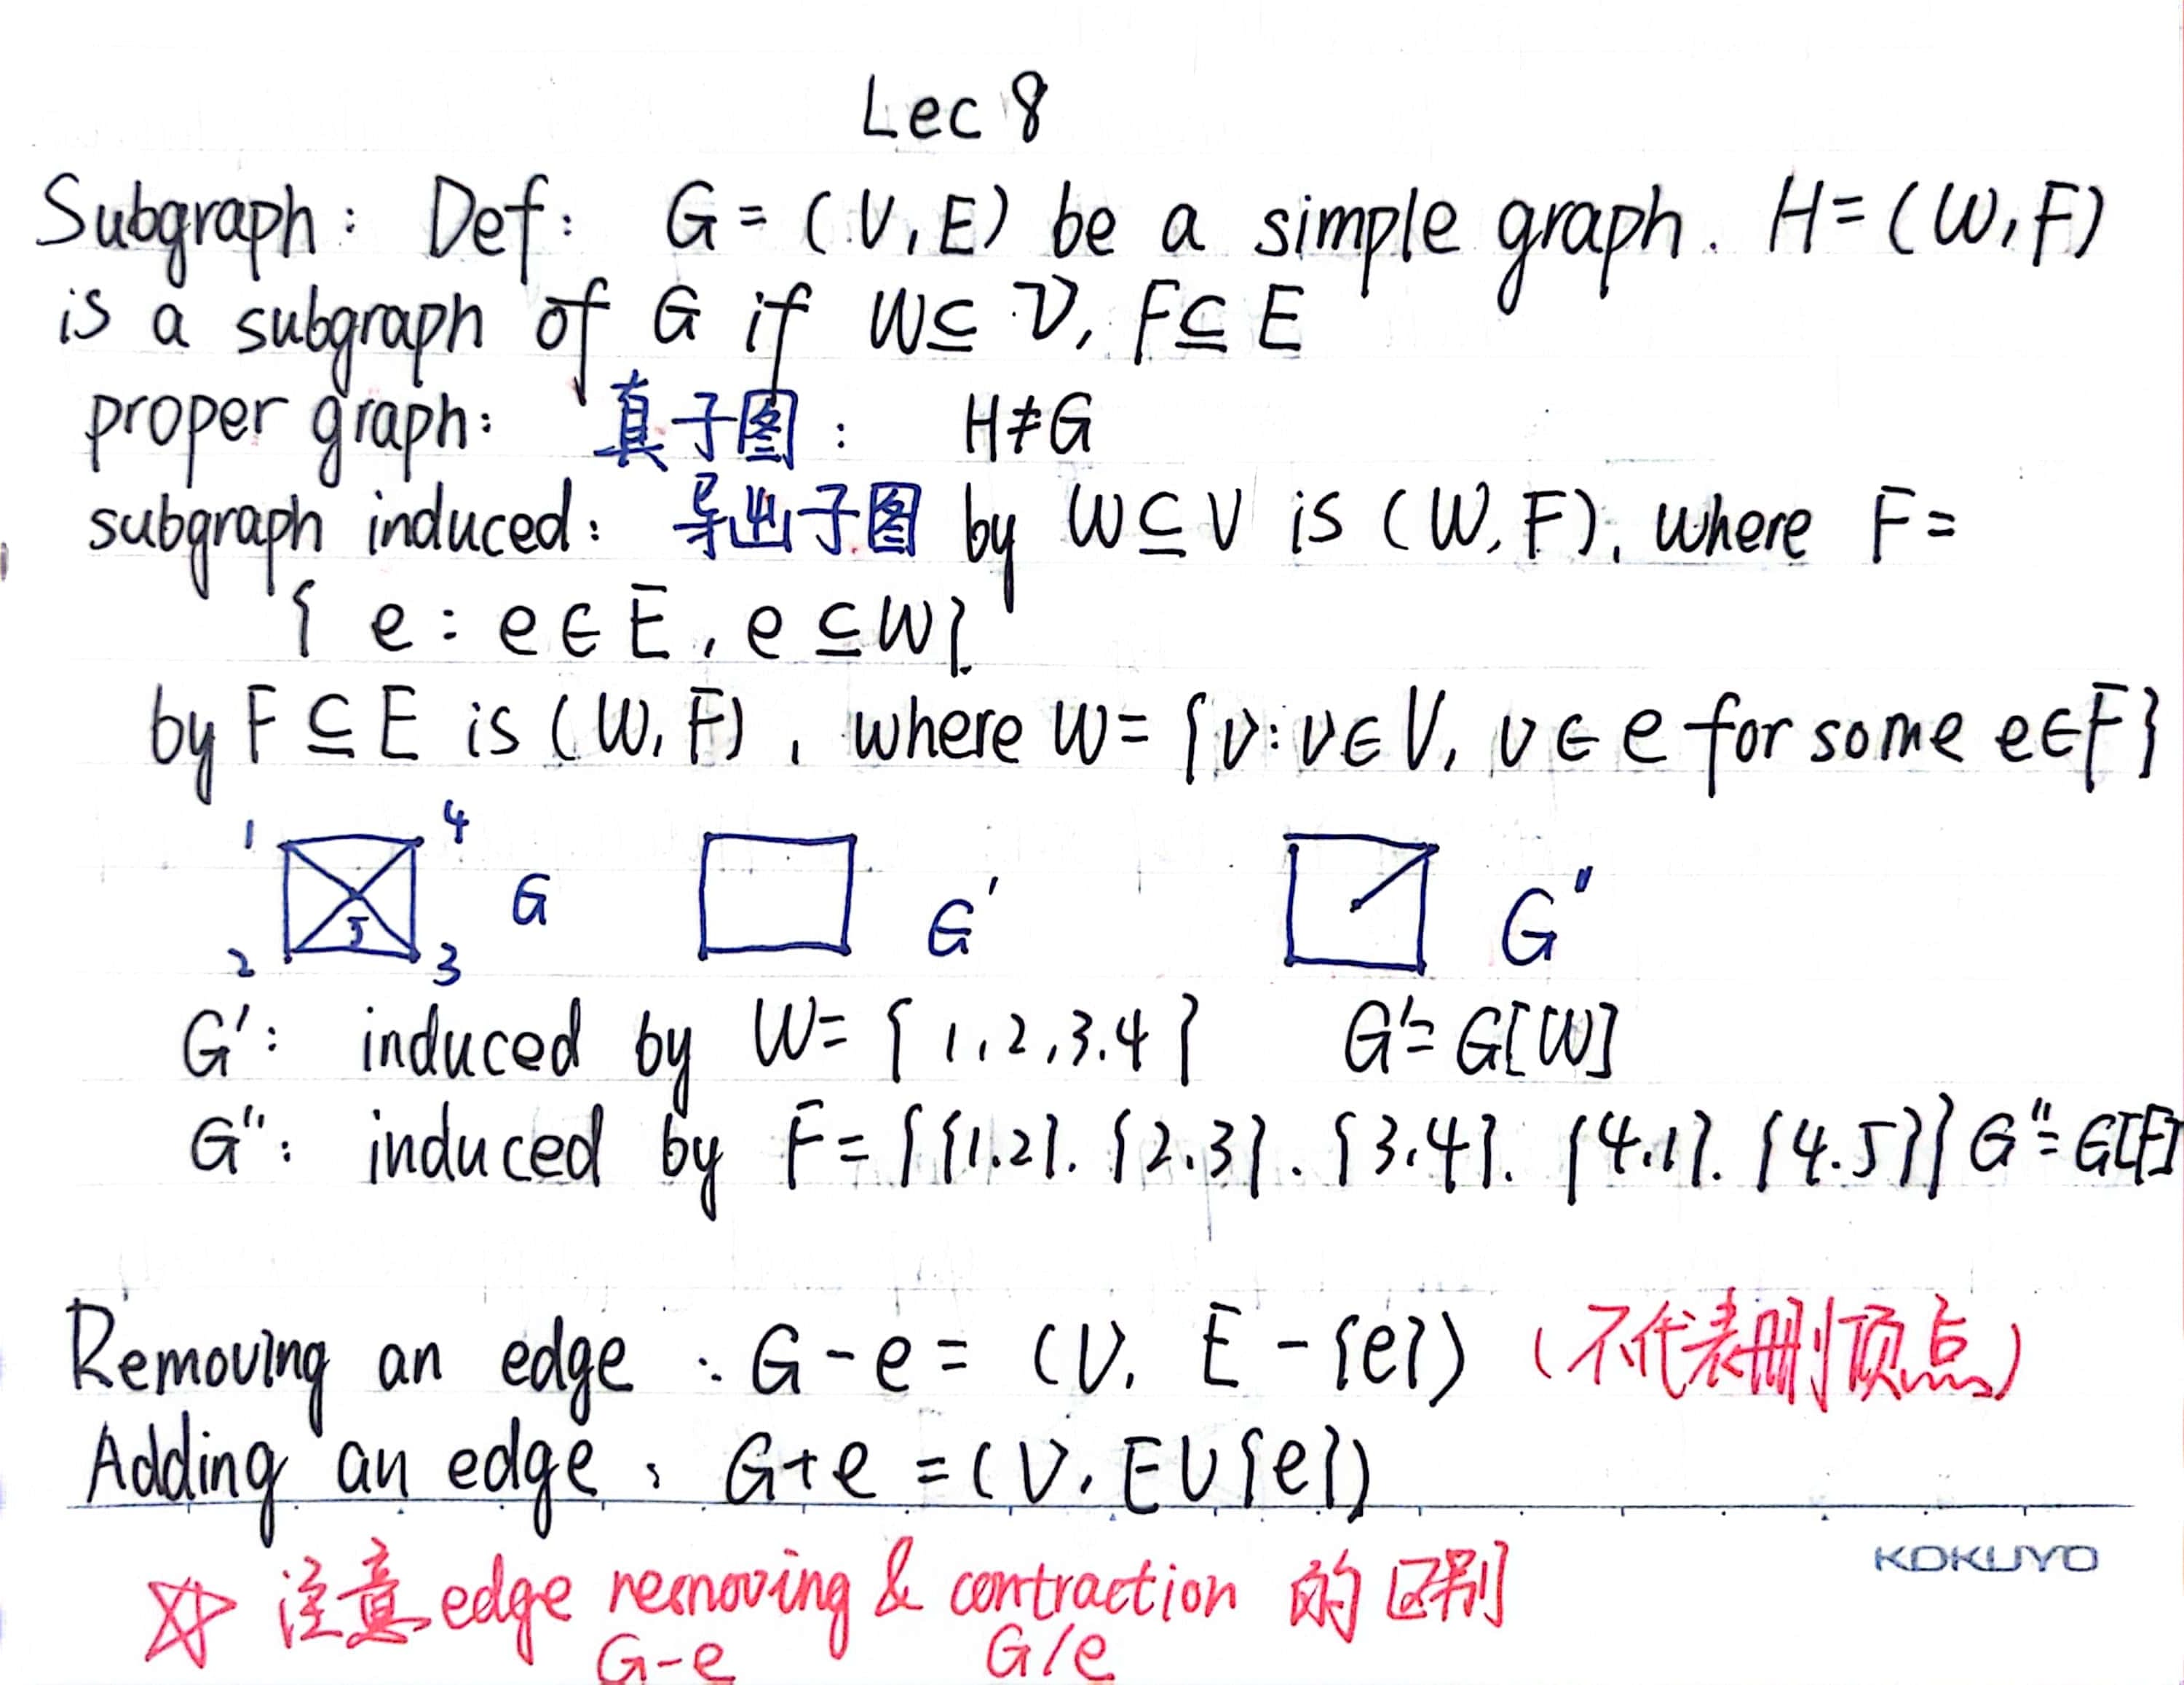 Lec 8
Subgraph: Def: G = (V, E) be a simple graph. H = (W, F)
is a subgraph of G if W ⊆ V, F ⊆ E
proper graph: 真子图: H ≠ G
subgraph induced: 导出子图 by W ⊆ V is (W, F), where F =
{ e : e ∈ E, e ⊆ W }
by F ⊆ E is (W, F), where W = {v : v ∈ V, v ∈ e for some e ∈ F}
1 4
5 G G' G"
2 3
G': induced by W = {1, 2, 3, 4} G' = G[W]
G": induced by F = {{1,2}. {2,3}. {3,4}. {4,1}. {4,5}} G" = G[F]
Removing an edge: G - e = (V, E - {e}) (不代表删顶点)
Adding an edge: G + e = (V, E ∪ {e})
KOKUYO
☆ 注意 edge removing & contraction 的区别
G-e G/e